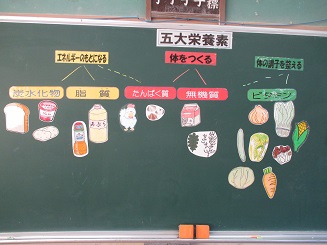 五大栄養素
エネルギーのもとになる
体をつくる
体の調子を整える
炭水化物
脂質
たんぱく質
無機質
ビタミン
あぶら